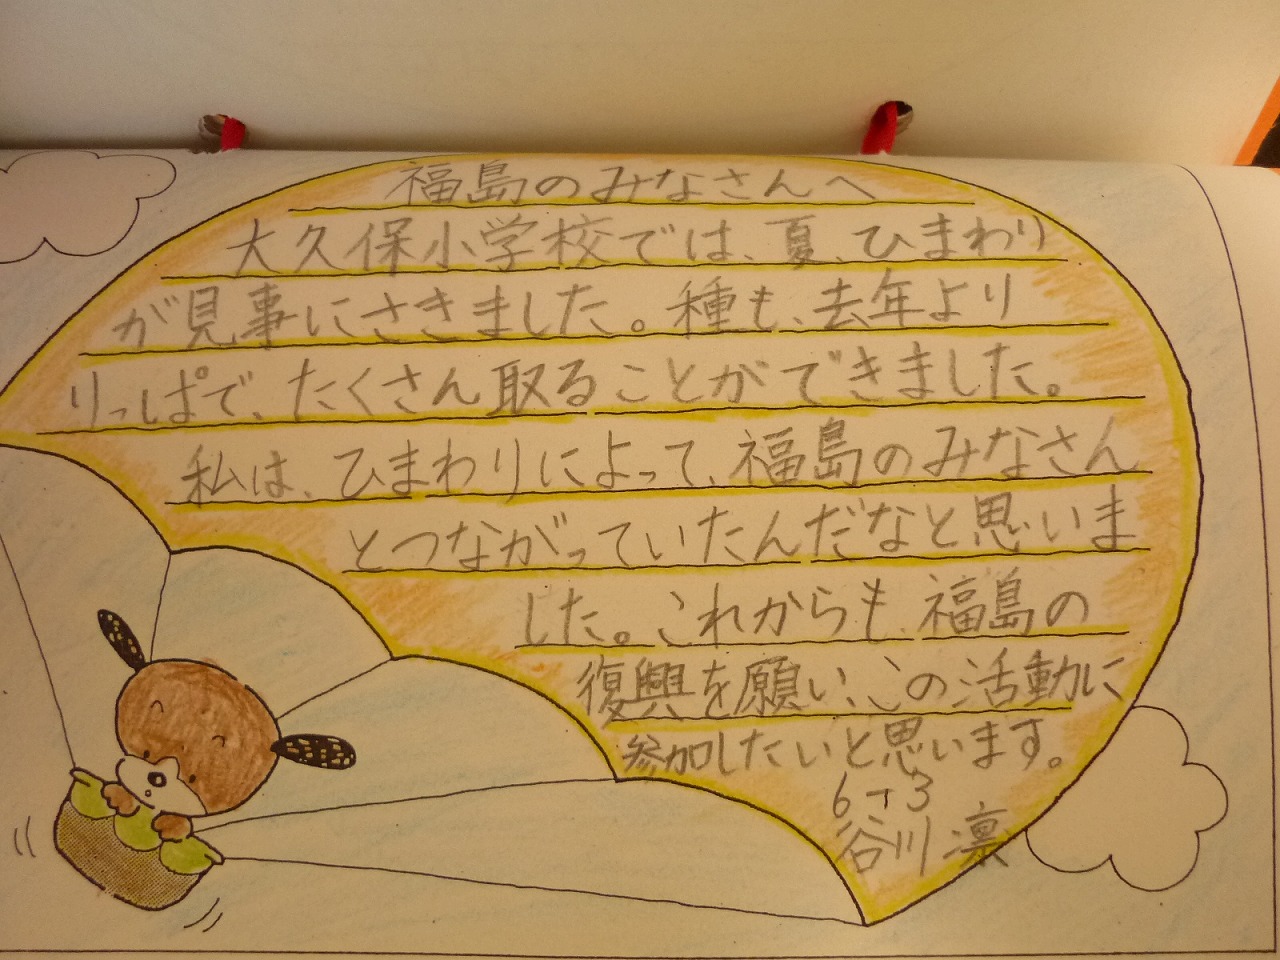 福島のみなさんへ
大久保小学校では、夏、ひまわり
が見事にさきました。種も、去年より
りっぱで、たくさん取ることができました。
私は、ひまわりによって、福島のみなさん
とつながっていたんだなと思いま
した。これからも、福島の
復興を願い、この活動に
参加したいと思います。
6-3
谷川 凛